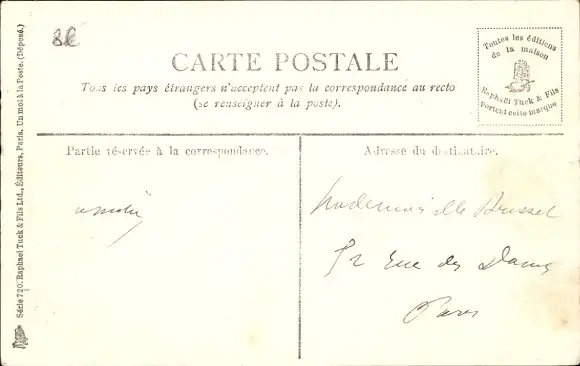 8f
CARTE POSTALE
Tous les pays étrangers n'acceptent pas la correspondance au recto
(se renseigner à la poste).
Toutes les éditions
de la maison
Raphaël Tuck & Fils
portent cette marque
Partie réservée à la correspondance.
Adresse du destinataire.
amitiés
Mademoiselle Brussel
52 rue des Dames
Paris
Série 720. Raphael Tuck & Fils Ltd., Éditeurs, Paris. Un mot à la Poste. (Déposé.)